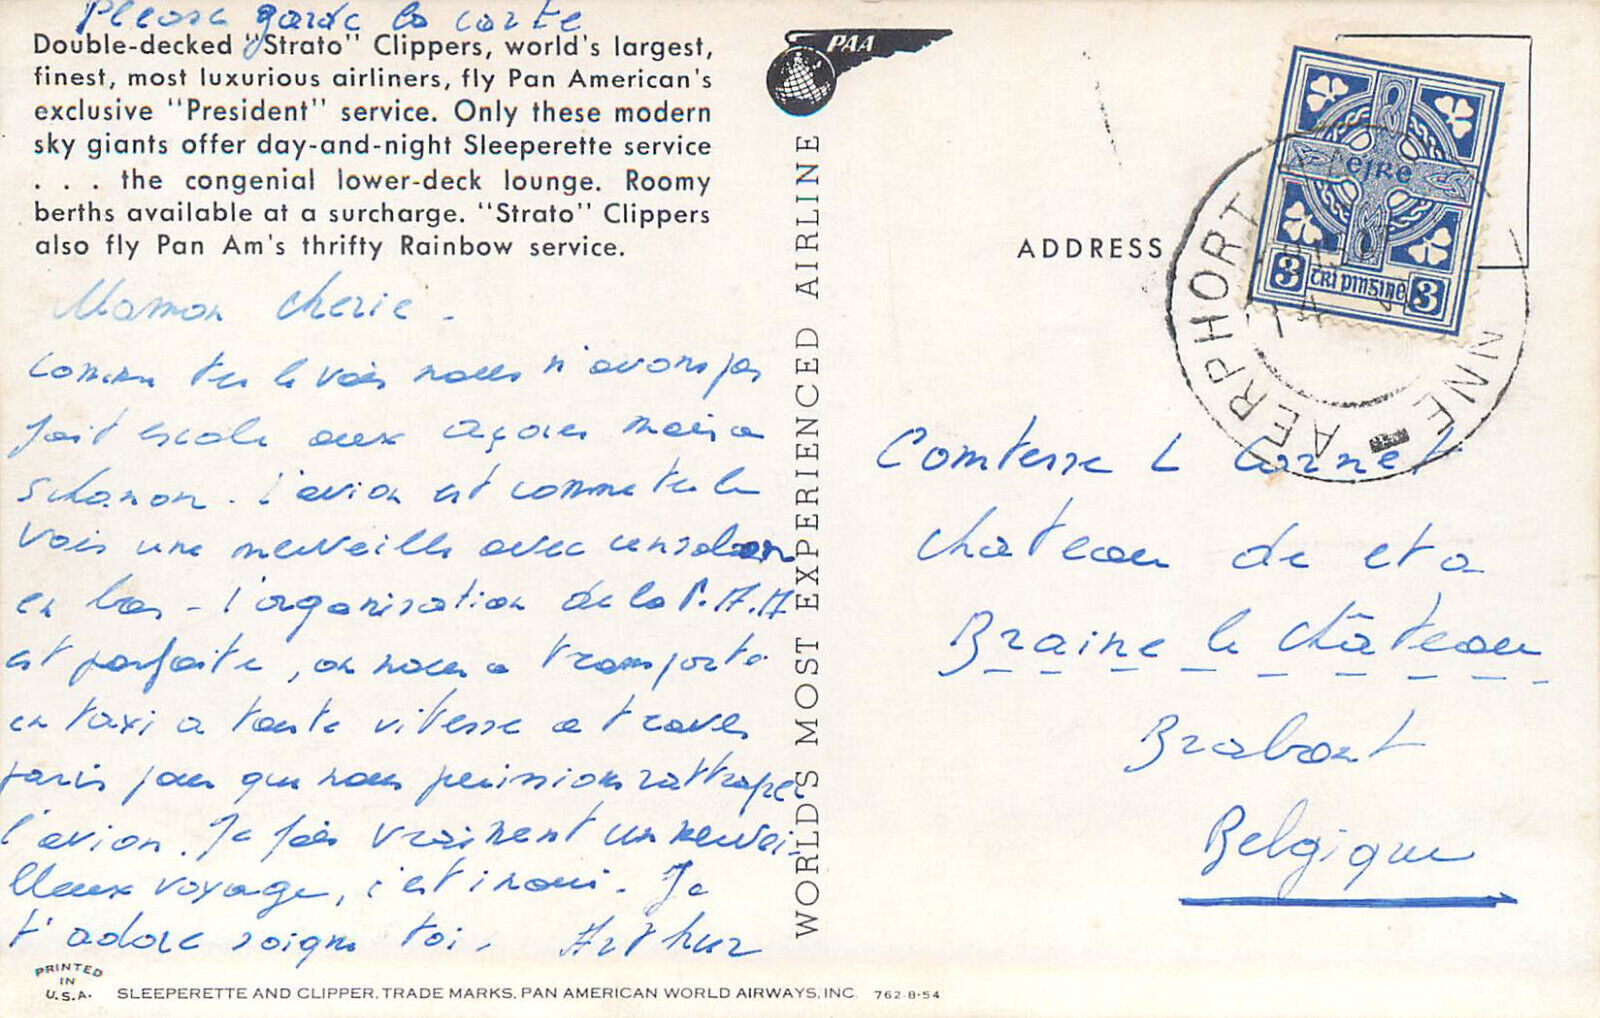 Please garde la carte
Double-decked "Strato" Clippers, world's largest,
finest, most luxurious airliners, fly Pan American's
exclusive "President" service. Only these modern
sky giants offer day-and-night Sleeperette service
. . . the congenial lower-deck lounge. Roomy
berths available at a surcharge. "Strato" Clippers
also fly Pan Am's thrifty Rainbow service.
Maman cherie -
comme tu le vois nous n'avons pas
fait escale aux açores mais a
Schanon. L'avion est comme tu le
vois une merveille avec un salon
en bas - l'organisation de la P.A.A
est parfaite, on nous a transporté
en taxi a toute vitesse a travers
paris pour que nous puissions rattraper
l'avion. Je fais vraiment un mervei-
lleux voyage, c'est inoui. Je
t'adore soigne toi. Arthur
PRINTED
IN
U.S.A.
SLEEPERETTE AND CLIPPER, TRADE MARKS, PAN AMERICAN WORLD AIRWAYS, INC. 762-8-54
PAA
WORLD'S MOST EXPERIENCED AIRLINE
ADDRESS
éire
3 trí pinsine 3
AERPHORT
NNE
Comtesse L Cornet
chateau de et a
Braine le château
Brabant
Belgique